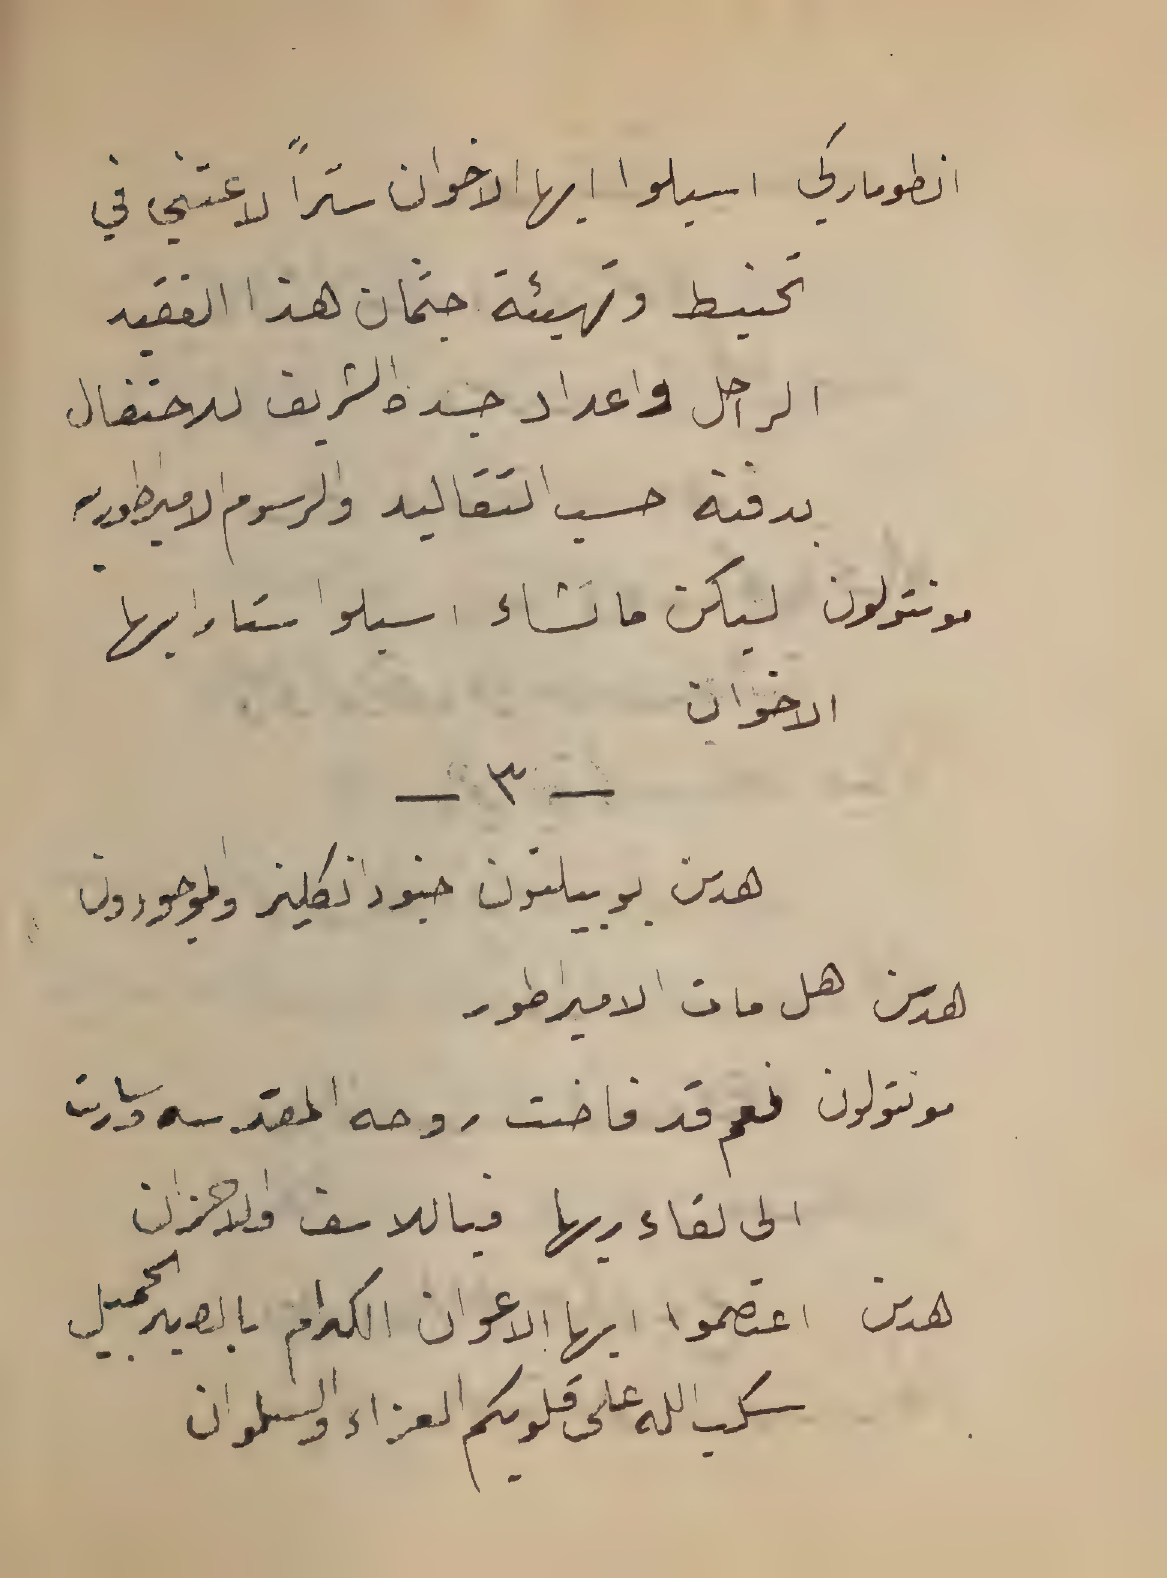 انطوماركي اسبلوا ايها الاخوان ستراً لاعتني في
تحنيط وتهيئة جثمان هذا الفقيد
الراحل واعداد جسده الشريف للاحتفال
بدفنه حسب التقاليد والرسوم الاميراطوريه
مونتولون ليكن ما تشاء اسبلوا ستارا ايها
الاخوان
— ٣ —
هدسن بوبيلتون جنود انكليز والموجودون
هدسن هل مات الامبراطور
مونتولون نعم قد فاضت روحه المقدسه وسارت
الى لقاء ربها فيا للاسف والاحزان
هدسن اعتصموا ايها الاعوان الكرام بالصبر الجميل
سكب الله على قلوبكم العزاء والسلوان